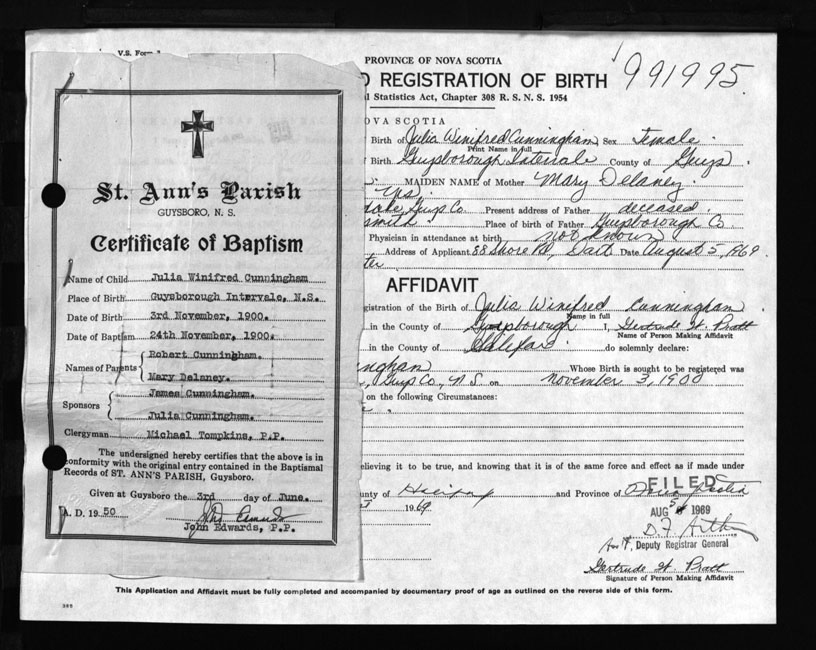 V.S. Form
St. Ann's Parish
GUYSBORO, N. S.
Certificate of Baptism
Name of Child Julia Winifred Cunningham
Place of Birth Guysborough Intervale, N.S.
Date of Birth 3rd November, 1900.
Date of Baptism 24th November, 1900.
Names of Parents { Robert Cunningham.
Mary Delaney.
Sponsors { James Cunningham.
Julia Cunningham.
Clergyman Michael Tompkins, P.P.
The undersigned hereby certifies that the above is in
conformity with the original entry contained in the Baptismal
Records of ST. ANN'S PARISH, Guysboro.
Given at Guysboro the 3rd day of June.
A. D. 19 50
John Edwards, P.P.
PROVINCE OF NOVA SCOTIA
REGISTRATION OF BIRTH
991995
Statistics Act, Chapter 308 R. S. N. S. 1954
OVA SCOTIA
Birth of Julia Winifred Cunningham Sex Female
Print Name in full
Birth Guysborough Intervale County of Guys
MAIDEN NAME of Mother Mary Delaney
N.S.
dale, Guys Co. Present address of Father deceased
smith Place of birth of Father Guysborough Co.
Physician in attendance at birth not known
Address of Applicant 88 Shore Rd, Dart Date August 5, 1969.
ter
AFFIDAVIT
gistration of the Birth of Julia Winifred Cunningham
Name in full
in the County of Guysborough I, Gertrude H. Pratt
Name of Person Making Affidavit
in the County of Halifax do solemnly declare:
ngham Whose Birth is sought to be registered was
, Guys Co., N.S. on November 3, 1900
on the following Circumstances:
elieving it to be true, and knowing that it is of the same force and effect as if made under
unty of Halifax and Province of Nova Scotia
FILED
st 1969
AUG 5 1969
Deputy Registrar General
Gertrude H. Pratt
Signature of Person Making Affidavit
This Application and Affidavit must be fully completed and accompanied by documentary proof of age as outlined on the reverse side of this form.